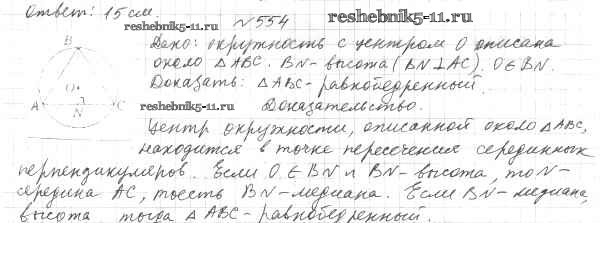 Ответ: 15 см.
reshebnik5-11.ru
N 554
reshebnik5-11.ru
Дано: окружность с центром O описана
около △ABC. BN - высота (BN⊥AC), O∈BN.
Доказать: △ABC - равнобедренный.
reshebnik5-11.ru
Доказательство.
B
O
A
N
C
Центр окружности, описанной около △ABC,
находится в точке пересечения серединных
перпендикуляров. Если O∈BN и BN - высота, то N-
середина AC, тоесть BN - медиана. Если BN - медиана,
высота тогда △ABC - равнобедренный.